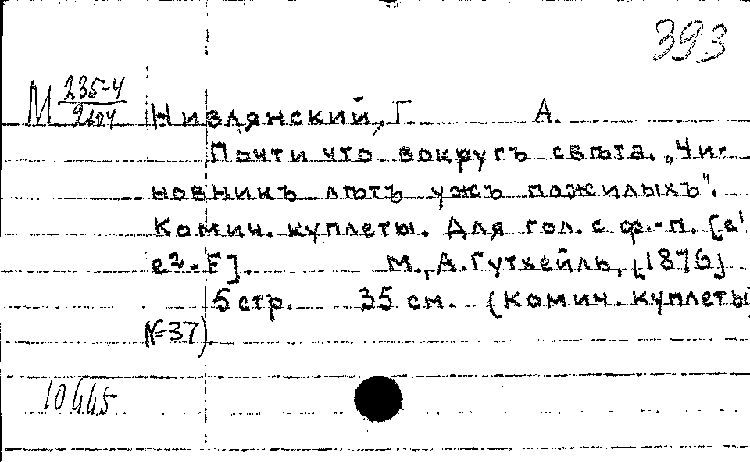 393
М 235-4/9604
Нивлянский, Г. А.
Почти что вокругъ свѣта. „Чи-
новникъ лѣтъ ужъ пожилыхъ".
Комич. куплеты. Для гол. с ф.-п. [a'
e2-F]. М., А. Гутхейль, [1876]
5 стр. 35 см. (Комич. куплеты
№37)
10445